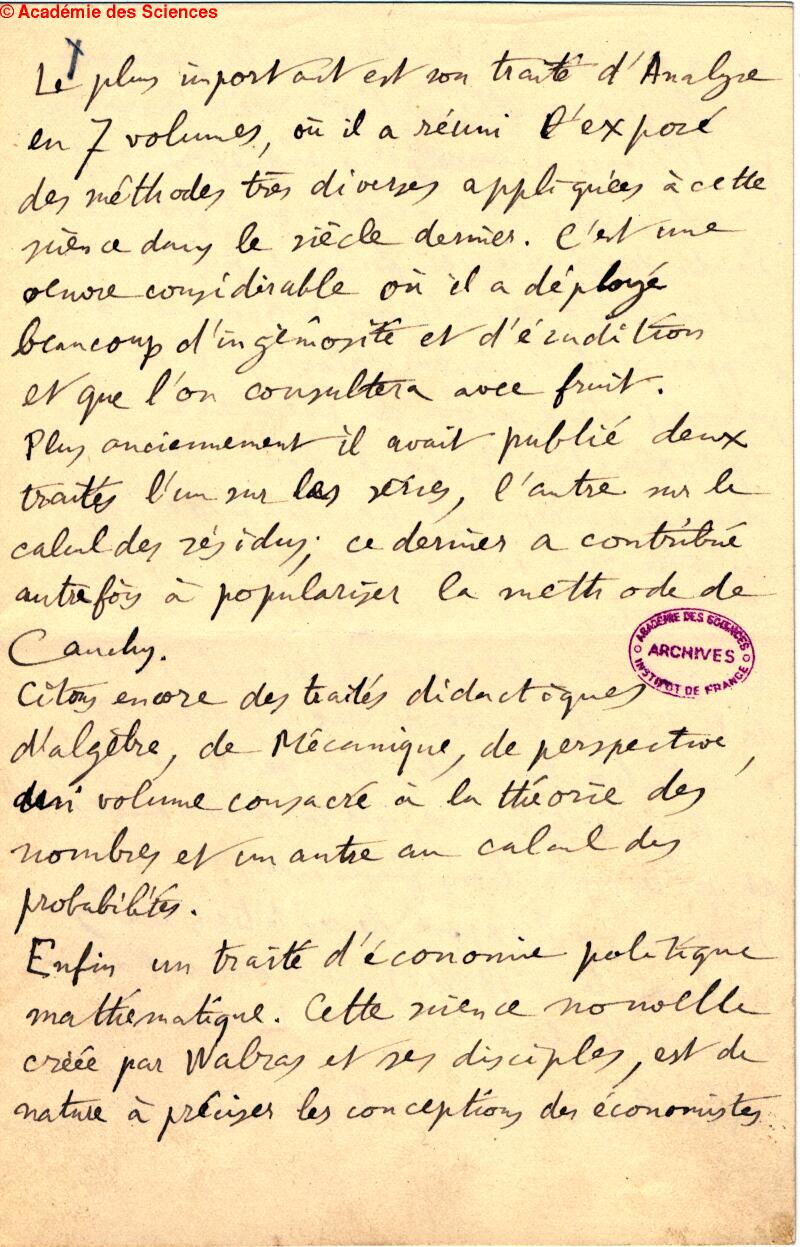 © Académie des Sciences
Le plus important est son traité d'Analyse
en 7 volumes, où il a réuni l'exposé
des méthodes très diverses appliquées à cette
science dans le siècle dernier. C'est une
oeuvre considérable où il a déployé
beaucoup d'ingéniosité et d'érudition
et que l'on consultera avec fruit.
Plus anciennement il avait publié deux
traités l'un sur les séries, l'autre sur le
calcul des résidus; ce dernier a contribué
autrefois à populariser la méthode de
Cauchy.
ACADÉMIE DES SCIENCES
ARCHIVES
INSTITUT DE FRANCE
Citons encore des traités didactiques
d'algèbre, de Mécanique, de perspective,
un volume consacré à la théorie des
nombres et un autre au calcul des
probabilités.
Enfin un traité d'économie politique
mathématique. Cette science nouvelle
créée par Walras et ses disciples, est de
nature à préciser les conceptions des économistes